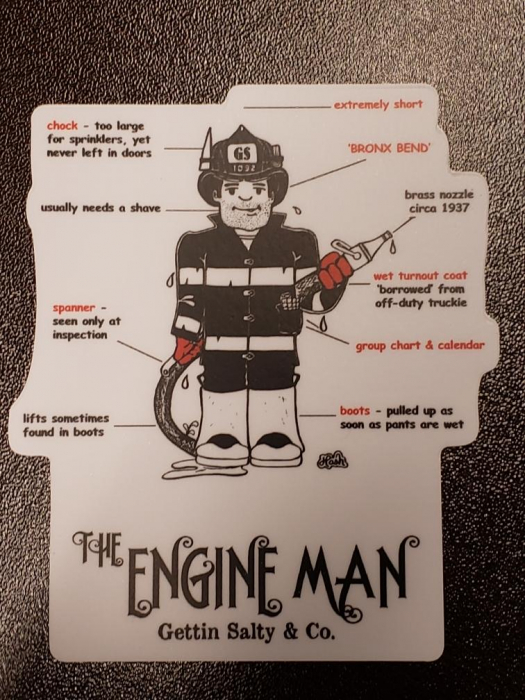 extremely short
chock - too large
for sprinklers, yet
never left in doors
GS
1092
'BRONX BEND'
brass nozzle
circa 1937
usually needs a shave
wet turnout coat
'borrowed' from
off-duty truckie
spanner -
seen only at
inspection
group chart & calendar
boots - pulled up as
soon as pants are wet
lifts sometimes
found in boots
Hash
THE ENGINE MAN
Gettin Salty & Co.